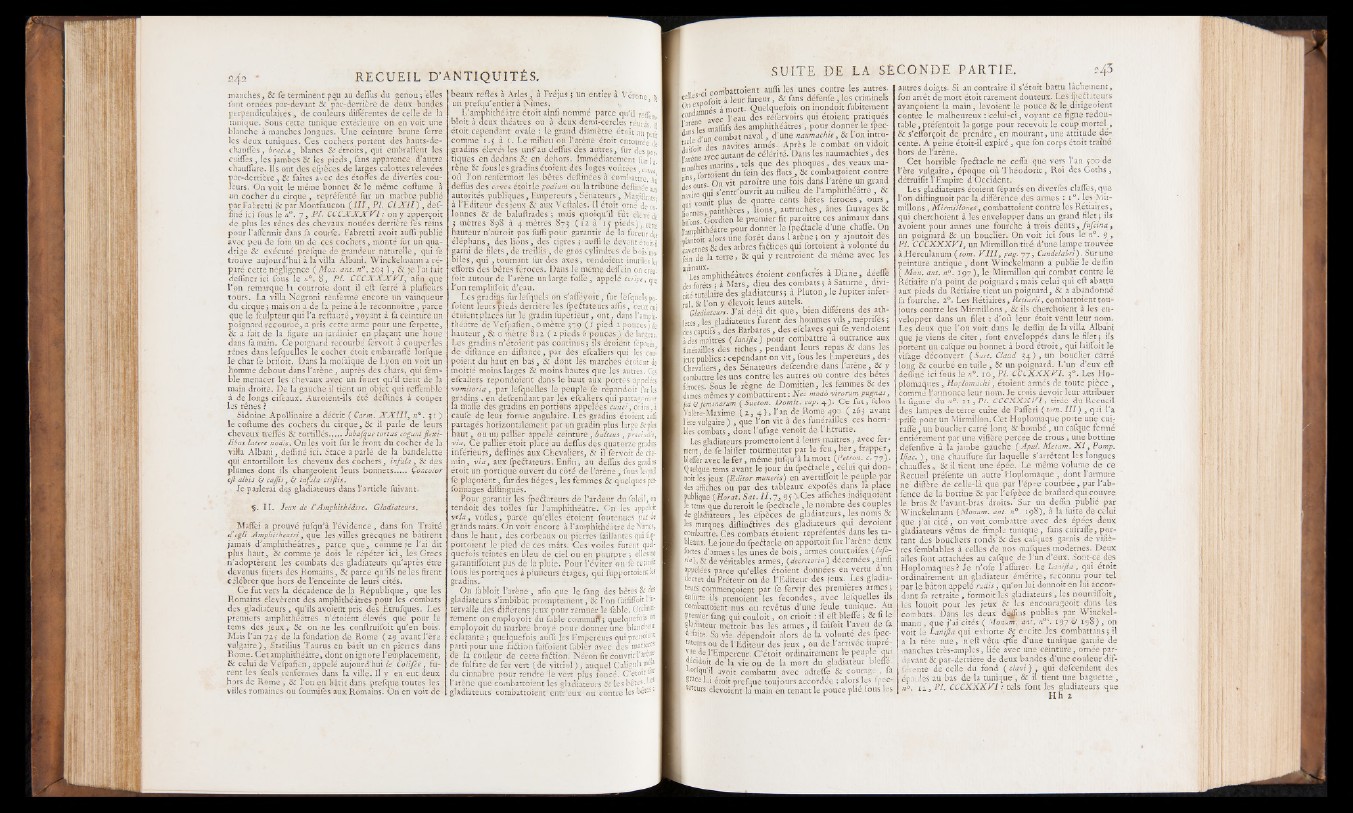 242
RECUEIL D'ANTIQUITÉS.
manches, & se terminent peu au dessus du genou; elles
sont ornées par-devant & par-derrière de deux bandes
perpendiculaires, de couleurs différentes de celle de la
tunique. Sous cette tunique extérieure on en voit une
blanche à manches longues. Une ceinture brune serre
les deux tuniques. Ces cochers portent des hauts-de-
chausses, braccæ, blancs & étroits, qui embrassent les
cuisses, les jambes & les pieds, sans apparence d'autre
chaussure. Ils ont des espèces de larges calottes relevées
par-derrière, & faites avec des étoffes de diverses cou-
leurs. On voit le même bonnet & le même costume à
un cocher du cirque, représenté sur un marbre publié
par Fabretti & par Montfaucon (III, Pl. CLXII), des-
siné ici sous le n°. 7, Pl. CCCXXXVI: on y apperçoit
de plus les rênes des chevaux nouées derrière ses reins
pour l'affermir dans sa course. Fabretti avoit aussi publié
avec peu de soin un de ces cochers, monté sur un qua-
drige & exécuté presque de grandeur naturelle, qui se
trouve aujourd'hui à la villa Albani. Winckelmann a ré-
paré cette négligence (Mon. ant. n°. 203), & je l'ai fait
dessiner ici sous le n°. 8, Pl. CCCXXXVI, afin que
l'on remarque la courroie dont il est serré à plusieurs
tours. La villa Negroni renferme encore un vainqueur
du cirque; mais on a de la peine à le reconnoître, parce
que le sculpteur qui l'a restauré, voyant à sa ceinture un
poignard recourbé, a pris cette arme pour une serpette,
& a fait de la figure un jardinier en plaçant une houe
dans sa main. Ce poignard recourbé servoit à couper les
rênes dans lesquelles le cocher étoit embarrassé lorsque
le char se brisoit. Dans la mosaïque de Lyon on voit un
homme debout dans l'arène, auprès des chars, qui sem-
ble menacer les chevaux avec un fouet qu'il tient de la
main droite. De la gauche il tient un objet qui ressemble
à de longs ciseaux. Auroient-ils été destinés à couper
les rênes?
Sidoine Apollinaire a décrit (Carm. XXIII, n°. 31)
le costume des cochers du cirque, & il parle de leurs
cheveux tressés & tortillés.....
villa Albani, dessiné ici. Stace a parlé de la bandelette
qui entortilloit les cheveux des cochers, infula, & des
plumes dont ils changeoient leurs bonnets.....
est alois & cassis, & infula cristis.
Je parlerai des gladiateurs dans l'article suivant.
§. II. Jeux de l'Amphithéâtre. Gladiateurs.
Maffei a prouvé jusqu'à l'évidence, dans son Traité
d'egli Amphitheatri, que les villes grecques ne bâtirent
jamais d'amphithéâtres, parce que, comme je l'ai dit
plus haut, & comme je dois le répéter ici, les Grecs
n'adoptèrent les combats des gladiateurs qu'après être
devenus sujets des Romains, & parce qu'ils ne les firent
célébrer que hors de l'enceinte de leurs cités.
Ce fut vers la décadence de la République, que les
Romains élevèrent des amphithéâtres pour les combats
des gladiateurs, qu'ils avoient pris des Etrusques. Les
premiers amphithéâtres n'étoient élevés que pour le
tems des jeux, & on ne les construisoit qu'en bois.
Mais l'an 725 de la fondation de Rome (29 avant l'ère
vulgaire), Statilius Taurus en bâtit un en pierres dans
Rome. Cet amphithéâtre, dont on ignore l'emplacement,
& celui de Vespasien, appelé aujourd'hui le Colisée, fu-
rent les seuls renfermés dans la ville. Il y en eut deux
hors de Rome, & l'on en bâtit dans presque toutes les
villes romaines ou soumises aux Romains. On en voit de
beaux restes à Arles, à Fréjus; un entier à Vérone, &
un presqu'entier à Nimes.
L'amphithéâtre étoit ainsi nommé parce qu'il ressem-
bloit à deux théâtres ou à deux demi-cercles réunis. Il
étoit cependant ovale: le grand diamètre étoit au petit
comme 1.5 à 1. Le milieu ou l'arène étoit entourée de
gradins élevés les uns au dessus des autres, sur des por-
tiques en dedans & en dehors. Immédiatement sur l'a-
rène & sous les gradins étoient des loges voûtées, caveæ,
où l'on renfermoit les bêtes destinées à combattre. Au
dessus des caveæ étoit le podium ou la tribune destinée aux
autorités publiques, Empereurs, Sénateurs, Magistrats,
à l'Editeur des jeux & aux Vestales. Il étoit orné de co-
lonnes & de balustrades; mais quoiqu'il fût élevé de
3 mètres 898 à 4 mètres 873 (12 à 15 pieds), cette
hauteur n'auroit pas suffi pour garantir de la fureur des
éléphans, des lions, des tigres: aussi le devant étoit-il
garni de filets, de treillis, de gros cylindres de bois mo-
biles, qui, tournant sur des axes, rendoient inutiles les
efforts des bêtes féroces. Dans le même dessein on creu-
soit autour de l'arène un large fossé, appelé euripe, que
l'on remplissoit d'eau.
Les gradins sur lesquels on s'asseyoit, sur lesquels po-
soient leurs pieds derrière les spectateurs assis, ceux qui
étoient placés sur le gradin supérieur, ont, dans l'amphi-
théâtre de Vespasien, 0 mètre 379 (1 pied 2 pouces) de
hauteur, & 0 mètre 812 (2 pieds 6 pouces) de largeur.
Les gradins n'étoient pas continus; ils étoient séparés,
de distance en distance, par des escaliers qui les cou-
poient du haut en bas, & dont les marches étoient de
moitié moins larges & moins hautes que les autres. Ces
escaliers répondoient dans le haut aux portes appelées
vomitoria, par lesquelles le peuple se répandoit sur les
gradins, en descendant par les escaliers qui partageoient
la masse des gradins en portions appelées cunei, coins, à
cause de leur forme angulaire. Les gradins étoient aussi
partagés horizontalement par un gradin plus large & plus
haut, ou un pallier appelé ceinture, balteus, præcinc-
tio. Ce pallier étoit placé au dessus des quatorze gradins
inférieurs, destinés aux Chevaliers, & il servoit de che-
min, via, aux spectateurs. Enfin, au dessus des gradins
étoit un portique ouvert du côté de l'arène, sous lequel
se plaçoient, sur des siéges, les femmes & quelques per-
sonnages distingués.
Pour garantir les spectateurs de l'ardeur du soleil, on
tendoit des toiles sur l'amphithéâtre. On les appeloit
vela, voiles, parce qu'elles étoient soutenues par de
grands mâts. On voit encore à l'amphithéâtre de Nimes,
dans le haut, des corbeaux ou pierres saillantes qui sup-
portoient le pied de ces mâts. Ces voiles furent quel-
quefois teintes en bleu de ciel ou en pourpre; elles ne
garantissoient pas de la pluie. Pour l'éviter on se retiroit
sous les portiques à plusieurs étages, qui supportoient les
gradins.
On sabloit l'arène, afin que le sang des bêtes & des
gladiateurs s'imbibât promptement, & l'on saisissoit l'in-
tervalle des différens jeux pour remuer le sable. Ordinai-
rement on employoit du sable commun; quelquefois on
employoit du marbre broyé pour donner une blancheur
éclatante; quelquefois aussi les Empereurs qui prenoient
parti pour une faction faisoient sabler avec des matières
de la couleur de cette faction. Néron fit couvrir l'arène
de sulfate de fer vert (de vitriol), auquel Caligula mêla
du cinnabre pour rendre le vert plus foncé. C'étoit sur
l'arène que combattoient les gladiateurs & les bêtes. Les
gladiateurs combattoient entr'eux ou contre les bêtes:
SUITE DE LA SECONDE PARTIE.
243
celles-ci combattoient aussi les unes contre les autres.
On exposoit à leur fureur, & sans défense, les criminels
condamnés à mort. Quelquefois on inondoit subitement
l'arène avec l'eau des réservoirs qui étoient pratiqués
dans les massifs des amphithéâtres, pour donner le spec-
tacle d'un combat naval, d'une naumachie, & l'on intro-
duisoit des navires armés. Après le combat on vidoit
l'arène avec autant de célérité. Dans les naumachies, des
monstres marins, tels que des phoques, des veaux ma-
rins, sortoient du sein des flots, & combattoient contre
des ours. On vit paroître une fois dans l'arène un grand
navire qui s'entr'ouvrit au milieu de l'amphithéâtre, &
qui vomit plus de quatre cents bêtes féroces, ours,
lionnes, panthères, lions, autruches, ânes sauvages &
bisons. Gordien le premier fit paroître ces animaux dans
l'amphithéâtre pour donner le spectacle d'une chasse. On
plantoit alors une forêt dans l'arène; on y ajoutoit des
cavernes & des arbres factices qui sortoient à volonté du
sein de la terre, & qui y rentroient de même avec les
animaux.
Les amphithéâtres étoient consacrés à Diane, déesse
des forêts; à Mars, dieu des combats; à Saturne, divi-
nité tutélaire des gladiateurs; à Pluton, le Jupiter infer-
nal, & l'on y élevoit leurs autels.
Gladiateurs. J'ai déjà dit que, bien différens des ath-
lètes, les gladiateurs furent des hommes vils, méprisés;
des captifs, des Barbares, des esclaves qui se vendoient
à des maîtres (lanistæ) pour combattre à outrance aux
funérailles des riches, pendant leurs repas & dans les
jeux publics: cependant on vit, sous les Empereurs, des
Chevaliers, des Sénateurs descendre dans l'arène, & y
combattre les uns contre les autres ou contre des bêtes
féroces. Sous le règne de Domitien, les femmes & des
dames mêmes y combattirent: Nec modo virorum pugnas,
sed & feminarum (Sueton. Domit. cap. 4). Ce fut, selon
Valère-Maxime (2, 4), l'an de Rome 490 (263 avant
l'ère vulgaire), que l'on vit à des funérailles ces horri-
bles combats, dont l'usage venoit de l'Etrurie.
Les gladiateurs promettoient à leurs maîtres, avec ser-
ment, de se laisser tourmenter par le feu, lier, frapper,
blesser avec le fer, même jusqu'à la mort (Petron. c. 77).
Quelque tems avant le jour du spectacle, celui qui don-
noit les jeux (Editor muneris) en avertissoit le peuple par
des affiches ou par des tableaux exposés dans la place
publique (Horat. Sat. II. 7, 95). Ces affiches indiquoient
le tems que dureroit le spectacle, le nombre des couples
de gladiateurs, les espèces de gladiateurs, les noms &
les marques distinctives des gladiateurs qui devoient
combattre. Ces combats étoient représentés dans les ta-
bleaux. Le jour du spectacle on apportoit sur l'arène deux
sortes d'armes: les unes de bois, armes courtoises (lusо-
riæ), & de véritables armes, (decretoria) décernées, ainsi
appelées parce qu'elles étoient données en vertu d'un
décret du Préteur ou de l'Editeur des jeux. Les gladia-
teurs commençoient par se servir des premières armes;
ensuite ils prenoient les secondes, avec lesquelles ils
combattoient nus ou revêtus d'une seule tunique. Au
premier sang qui couloit, on crioit: il est blessé; & si le
gladiateur mettoit bas les armes, il faisoit l'aveu de sa
défaite. Sa vie dépendoit alors de la volonté des spec-
tateurs ou de l'Editeur des jeux, ou de l'arrivée impré-
vue de l'Empereur. C'étoit ordinairement le peuple qui
décidoit de la vie ou de la mort du gladiateur blessé.
Lorsqu'il avoit combattu avec adresse & courage, sa
grâce lui étoit presque toujours accordée: alors les spec-
tateurs élevoient la main en tenant le pouce plié sous les
autres doigts. Si au contraire il s'étoit battu lâchement,
son arrêt de mort étoit rarement douteux. Les spectateurs
avançoient la main, levoient le pouce & le dirigeoient
contre le malheureux: celui-ci, voyant ce signe redou-
table, présentoit la gorge pour recevoir le coup mortel,
& s'efforçoit de prendre, en mourant, une attitude dé-
cente. A peine étoit-il expiré, que son corps étoit traîné
hors de l'arène.
Cet horrible spectacle ne cessa que vers l'an 500 de
l'ère vulgaire, époque où Théodoric, Roi des Goths,
détruisit l'Empire d'Occident.
Les gladiateurs étoient séparés en diverses classes, que
l'on distinguoit par la différence des armes: 1°. les Mir-
millons, Mirmillones, combattoient contre les Rétiaires,
qui cherchoient à les envelopper dans un grand filet; ils
avoient pour armes une fourche à trois dents, fuscina,
un poignard & un bouclier. On voit ici sous le n°. 9,
Pl. CCCXXXVI, un Mirmillon tiré d'une lampe trouvée
à Herculanum (tom. VIII, pag. 77, Candelabri). Sur une
peinture antique, dont Winckelmann a publié le dessin
(Mon. ant. n°. 197), le Mirmillon qui combat contre le
Rétiaire n'a point de poignard; mais celui qui est abattu
aux pieds du Rétiaire tient un poignard, & a abandonné
sa fourche. 2°. Les Rétiaires, Retiarii, combattoient tou-
jours contre les Mirmillons, & ils cherchoient à les en-
velopper dans un filet: d'où leur étoit venu leur nom.
Les deux que l'on voit dans le dessin de la villa Albani
que je viens de citer, sont enveloppés dans le filet; ils
portent un casque ou bonnet à bord étroit, qui laissoit le
visage découvert (Suet. Claud 34), un bouclier carré
long & courbé en tuile, & un poignard. L'un d'eux est
dessiné ici sous le n°. 10, Pl. CCCXXXVI. 3°. Les Ho-
plomaques, Hoplomachi, étoient armés de toute pièce,
comme l'annonce leur nom. Je crois devoir leur attribuer
la figure du n°. 11, Pl. CCCXXXVI, tirée du Recueil
des lampes de terre cuite de Passeri (tom. III), qui l'a
prise pour un Mirmillon. Cet Hoplomaque porte une cui-
rasse, un bouclier carré long & bombé, un casque fermé
entièrement par une visière percée de trous, une bottine
défensive à la jambe gauche (Apul. Metam. XI, Pomp.
Isiac.), une chaussure sur laquelle s'arrêtent les longues
chausses, & il tient une épée. Le même volume de ce
Recueil présente un autre Hoplomaque, dont l'armure
ne diffère de celle-là que par l'épée courbée, par l'ab-
sence de la bottine & par l'espèce de brassard qui couvre
le bras & l'avant-bras droits. Sur un dessin publié par
Winckelmann (Monum. ant n° 198), à la suite de celui
que j'ai cité, on voit combattre avec des épées deux
gladiateurs vêtus de simple tunique, sans cuirasse, por-
tant des boucliers ronds & des casques garnis de visiè-
res semblables à celles de nos masques modernes. Deux
ailes sont attachées au casque de l'un d'eux. Sont-ce des
Hoplomaques? Je n'ose l'assurer. Le Lanista, qui étoit
ordinairement un gladiateur émérite, reconnu pour tel
par le bâton appelé rudis, qu'on lui donnoit en lui accor-
dant sa retraite, formoit les gladiateurs, les nourrissoit,
les louoit pour les jeux & les encourageoit dans les
combats. Dans les deux dessins publiés par Winckel-
mann, que j'ai cités (Monum. ant. n°. 197 & 198), on
voit le Lanista qui exhorte & excite les combattans; il
a la tête nue, n'est vêtu que d'une tunique garnie de
manches très-amples, liée avec une ceinture, ornée par-
devant & par-derrière de deux bandes d'une couleur dif-
férente de celle du fond (clavi), qui descendent des
épaules au bas de la tunique, & il tient une baguette,
n°. 12, Pl. CCCXXXVI: tels sont les gladiateurs que
H h 2